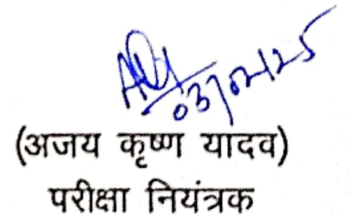 03/02/25
(अजय कृष्ण यादव)
परीक्षा नियंत्रक